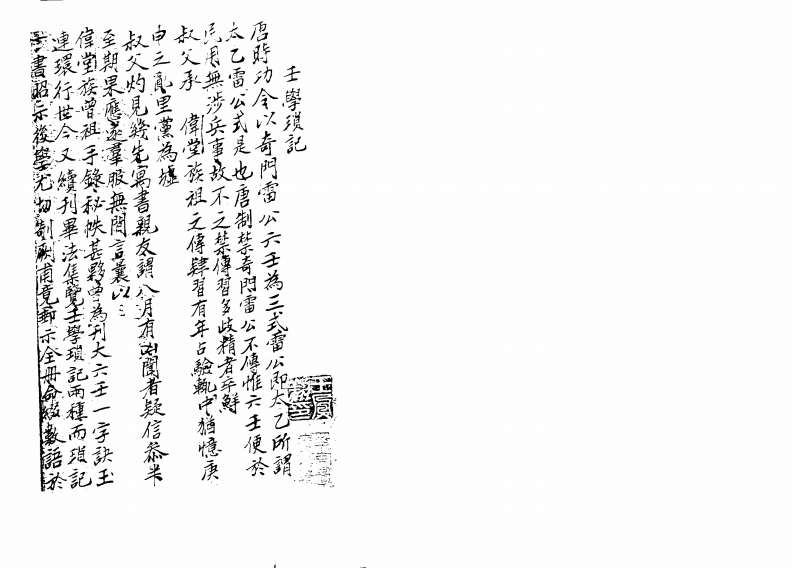 壬學瑣記
唐時功令以奇門雷公六壬為三式雷公即太乙所謂
太乙雷公式是也唐制禁奇門雷公不傳惟六壬便於
民用無涉兵事故不之禁傳習多歧精者卒鮮
叔父承 偉堂族祖之傳肄習有年占驗輒中猶憶庚
申之亂里黨為墟
叔父灼見幾先寓書親友謂八月有凶聞者疑信參半
至期果應遂羣服無間言曩以
偉堂族曾祖手錄秘帙甚夥曾為刊大六壬一字訣玉
連環行世今又續刊畢法集覽壬學瑣記兩種而瑣記
書昭示後學尤切剞劂甫竟郵示全冊命綴數語於